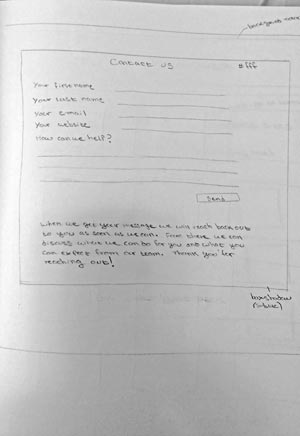 background
Contact us
#fff
Your first name
Your last name
Your e-mail
Your website
How can we help?
Send
When we get your message we will reach back out
to you as soon as we can. From there we can
discuss what we can do for you and what you
can expect from our team. Thank you for
reaching out!
box shadow